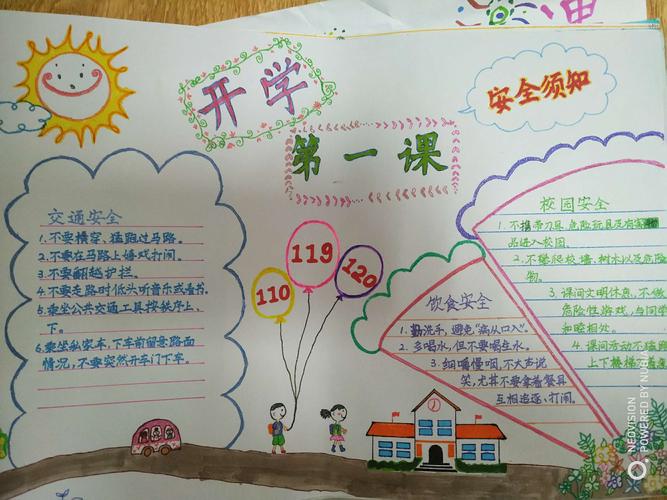 开学
第一课
安全须知
交通安全
1.不要横穿、猛跑过马路。
2.不要在马路上嬉戏打闹。
3.不要翻越护栏。
4.不要走路时低头听音乐或看书。
5.乘坐公共交通工具按秩序上、
下。
6.乘坐私家车,下车前留意路面
情况,不要突然开车门下车。
110
119
120
饮食安全
1.勤洗手,避免“病从口入”。
2.多喝水,但不要喝生水。
3.细嚼慢咽,不大声说
笑,尤其不要拿着餐具
互相追逐、打闹。
校园安全
1.不携带刀具、危险玩具及有害物
品进入校园。
2.不攀爬校墙、树木以及危险
物。
3.课间文明休息,不做
危险性游戏,与同学
和睦相处。
4.课间活动不猛跑
上下楼梯
NEOVISION
POWERED BY NUBIA